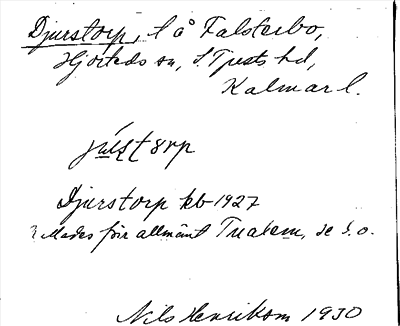 Djurstorp, l å Falsterbo,
Hjorteds sn, S. Tjusts hd,
Kalmar l.
Djurstorp kb 1927
för allmänt Tualem, se d. o.
Nils Henrikson 1930